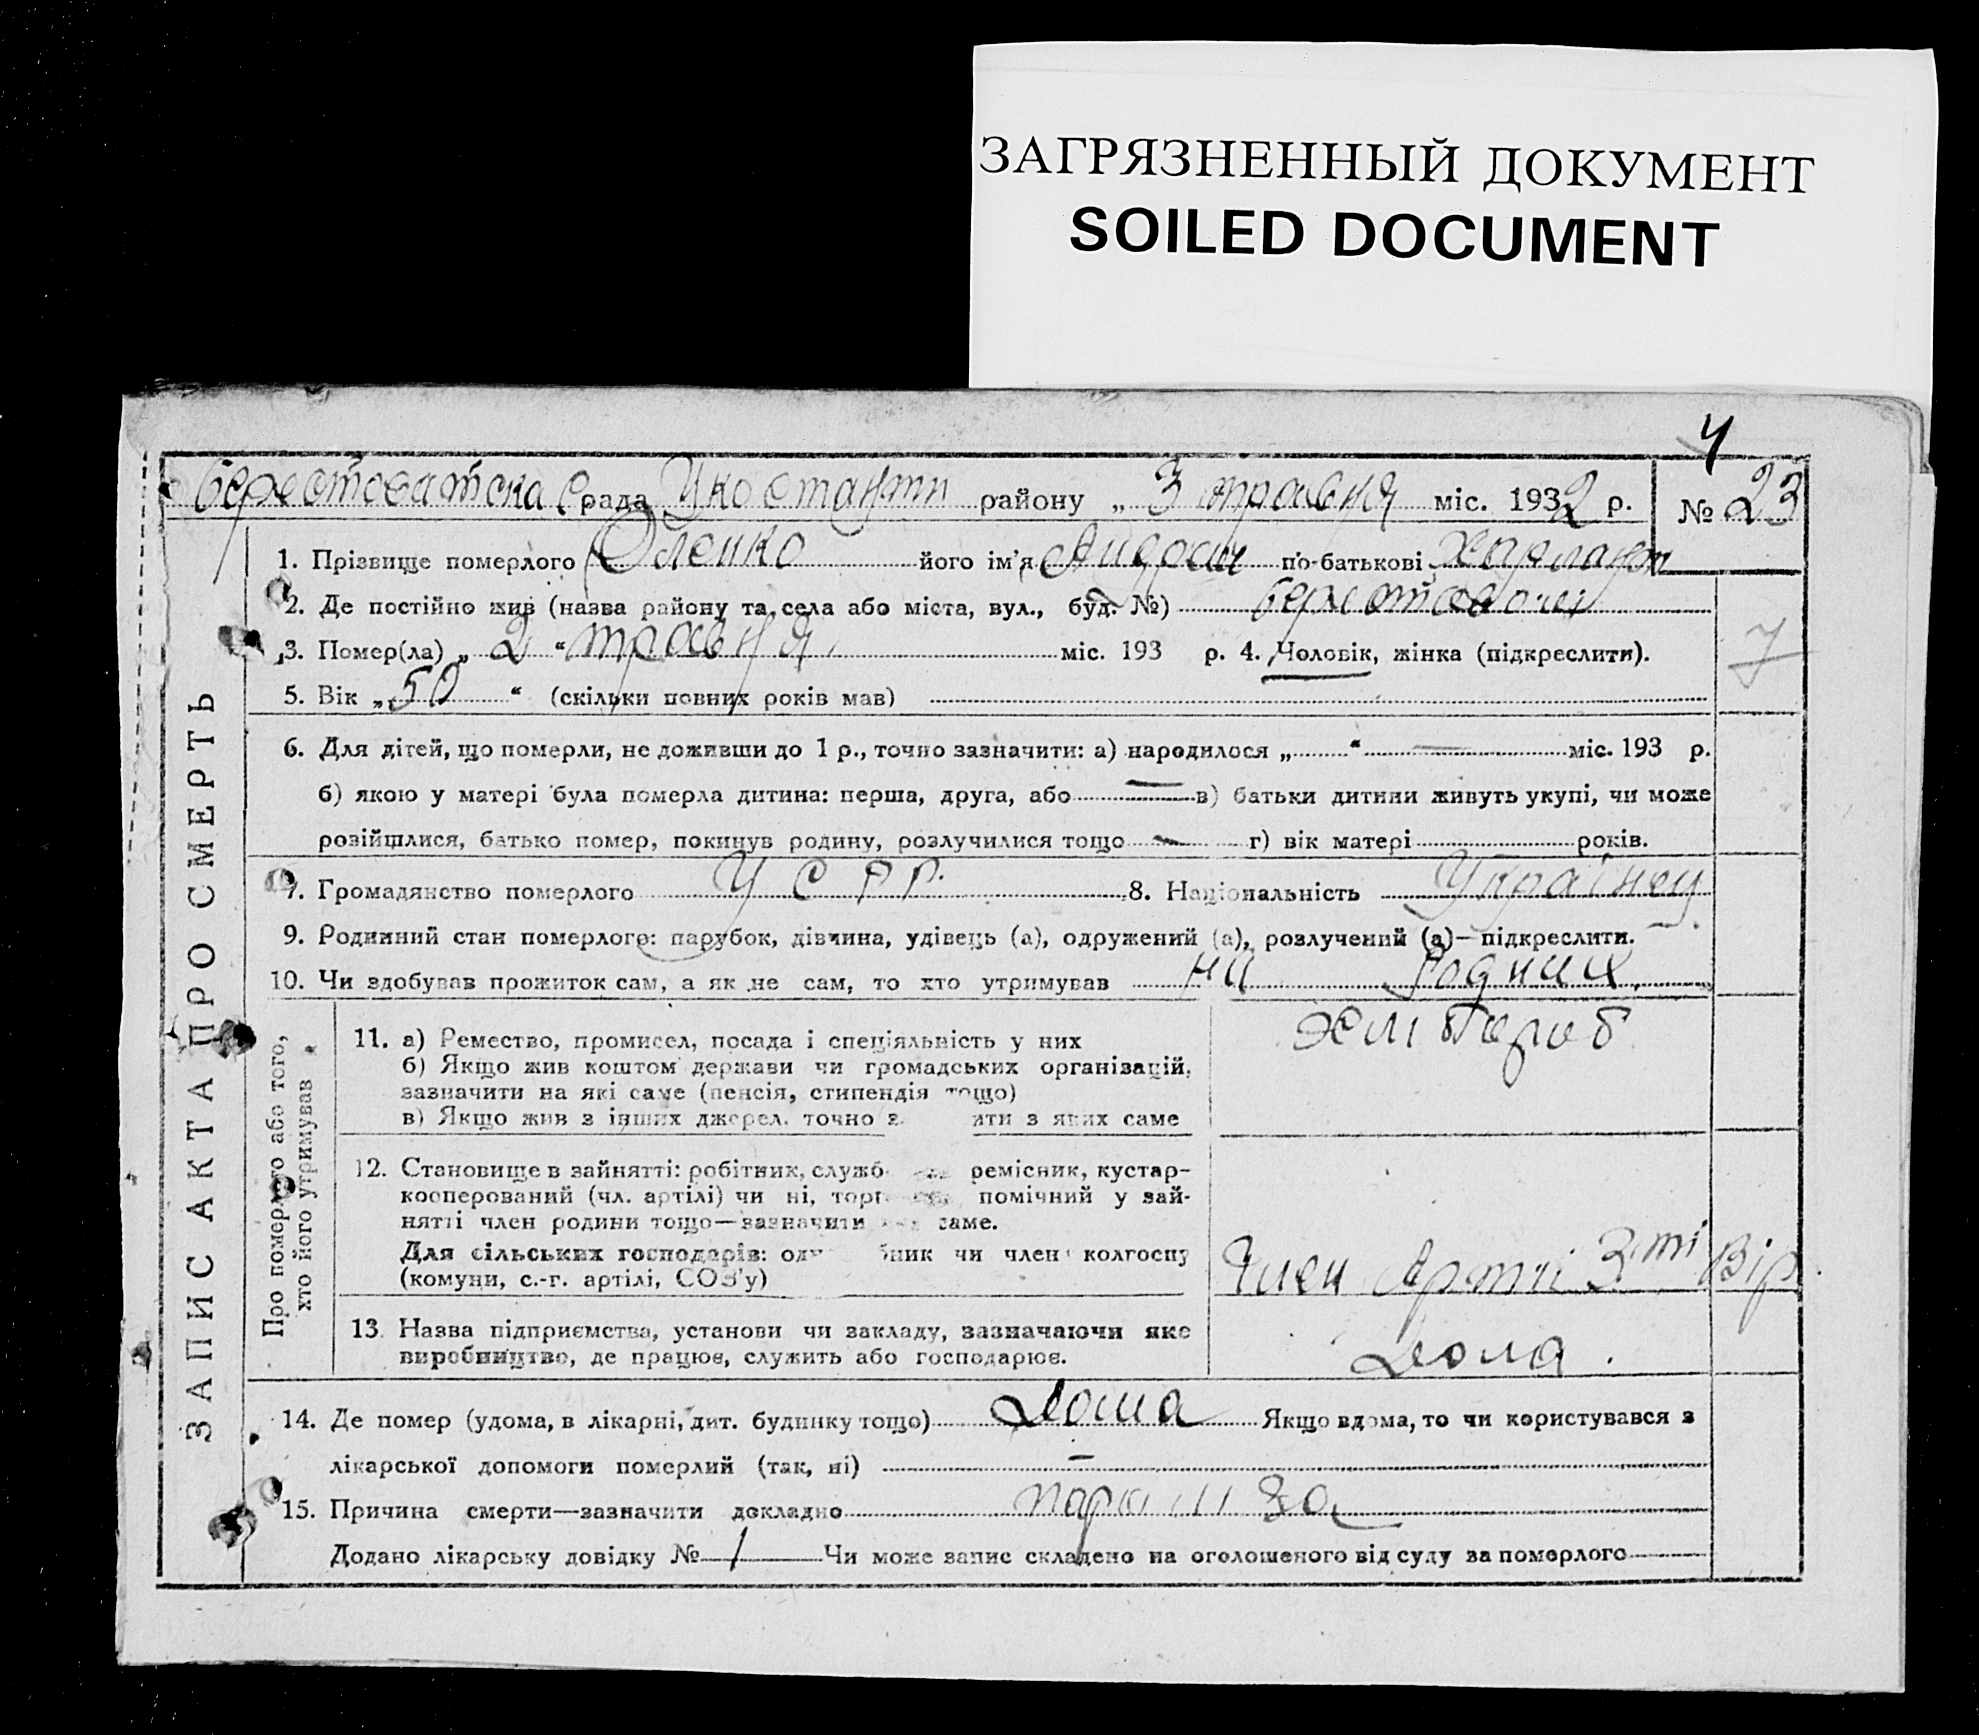 ЗАГРЯЗНЕННЫЙ ДОКУМЕНТ
SOILED DOCUMENT
4
Берестоватска Срада района „ 3 травня міс. 1932 р. № 23
1. Прізвище померлого Оленко його ім'я Андрей по-батькові
2. Де постійно жив (назва району та села або міста, вул., буд. №)
3. Помер(ла) „ 2 “ травня міс. 193 р. 4. Чоловік, жінка (підкреслити).
7
5. Вік „ 50 “ (скільки повних років мав)
6. Для дітей, що померли, не доживши до 1 р., точно зазначити: а) народилося „ “ — міс. 193 р.
б) якою у матері була померла дитина: перша, друга, або — в) батьки дитини живуть укупі, чи може
розійшлися, батько помер, покинув родину, розлучилися тощо — г) вік матері років.
7. Громадянство померлого УСРР. 8. Національність Українец
9. Родинний стан померлого: парубок, дівчина, удівець (а), одружений (а), розлучений (а)—підкреслити.
10. Чи здобував прожиток сам, а як не сам, то хто утримував
ЗАПИС АКТА ПРО СМЕРТЬ
Про померлого або того,
хто його утримував
11. а) Ремество, промисел, посада і спеціяльність у них
Хлібороб
б) Якщо жив коштом держави чи громадських організацій,
зазначити на які саме (пенсія, стипендія тощо)
в) Якщо жив з інших джерел, точно з ити з яких саме
12. Становище в зайнятті: робітник, служб ремісник, кустар-
кооперований (чл. артілі) чи ні, торг помічний у зай-
нятті член родини тощо—зазначити саме.
Для сільських господарів: од ник чи член колгоспу
(комуни, с.-г. артілі, СОЗ'у)
Член Артілі 3-ті Вір
13. Назва підприємства, установи чи закладу, зазначаючи яке
виробництво, де працює, служить або господарює.
14. Де помер (удома, в лікарні, дит. будинку тощо) Дома Якщо вдома, то чи користувався з
лікарської допомоги померлий (так, ні) —
15. Причина смерти—зазначити докладно
Додано лікарську довідку № Чи може запис складено на оголошеного від суду за померлого